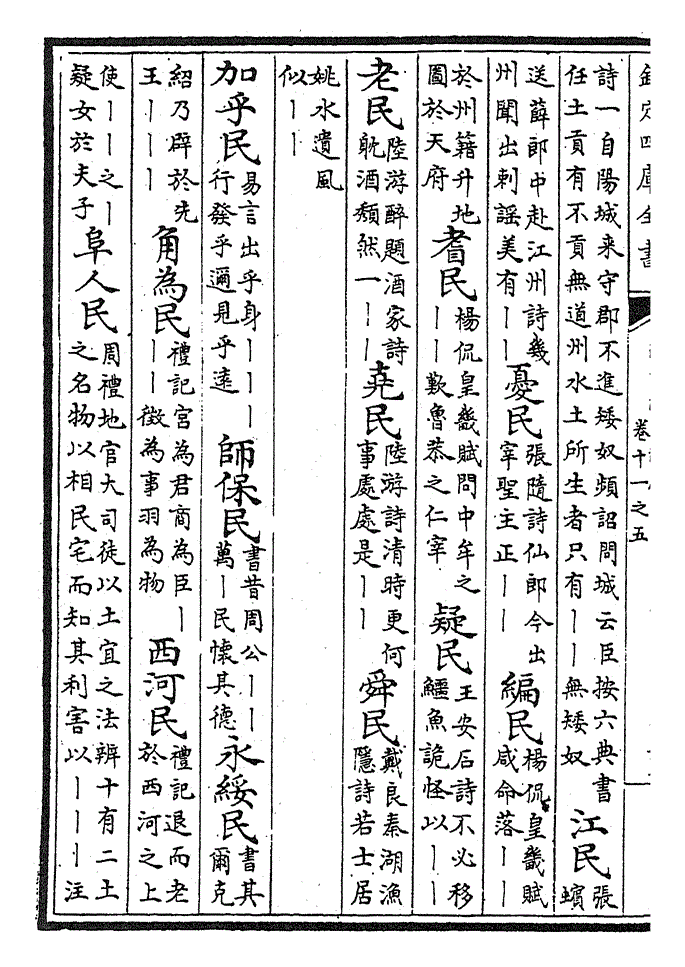 欽定四庫全書
卷十一之五
詩一自陽城来守郡不進矮奴頻詔問城云臣按六典書
任土貢有不貢無道州水土所生者只有丨丨無矮奴
江民
張
蠙
送薛郎中赴江州詩幾
州聞出刺謡美有丨丨
憂民
張隨詩仙郎今出
宰聖主正丨丨
編民
楊侃皇畿賦
咸命落丨丨
於州籍升地
圖於天府
耆民
楊侃皇畿賦問中牟之
丨丨歎魯恭之仁宰
疑民
王安石詩不必移
鱷魚詭怪以丨丨
老民
陸游醉題酒家詩
耽酒頽然一丨丨
堯民
陸游詩清時更何
事處處是丨丨
舜民
戴良秦湖漁
隱詩若士居
姚水遺風
似丨丨
加乎民
易言出乎身丨丨丨
行發乎邇見乎遠
師保民
書昔周公丨丨
萬丨民懷其德
永綏民
書其
爾克
紹乃辟於先
王丨丨丨
角為民
禮記宫為君商為臣丨
丨丨徵為事羽為物
西河民
禮記退而老
於西河之上
使丨丨之丨
疑女於夫子
阜人民
周禮地官大司徒以土宜之法辨十有二土
之名物以相民宅而知其利害以丨丨丨注